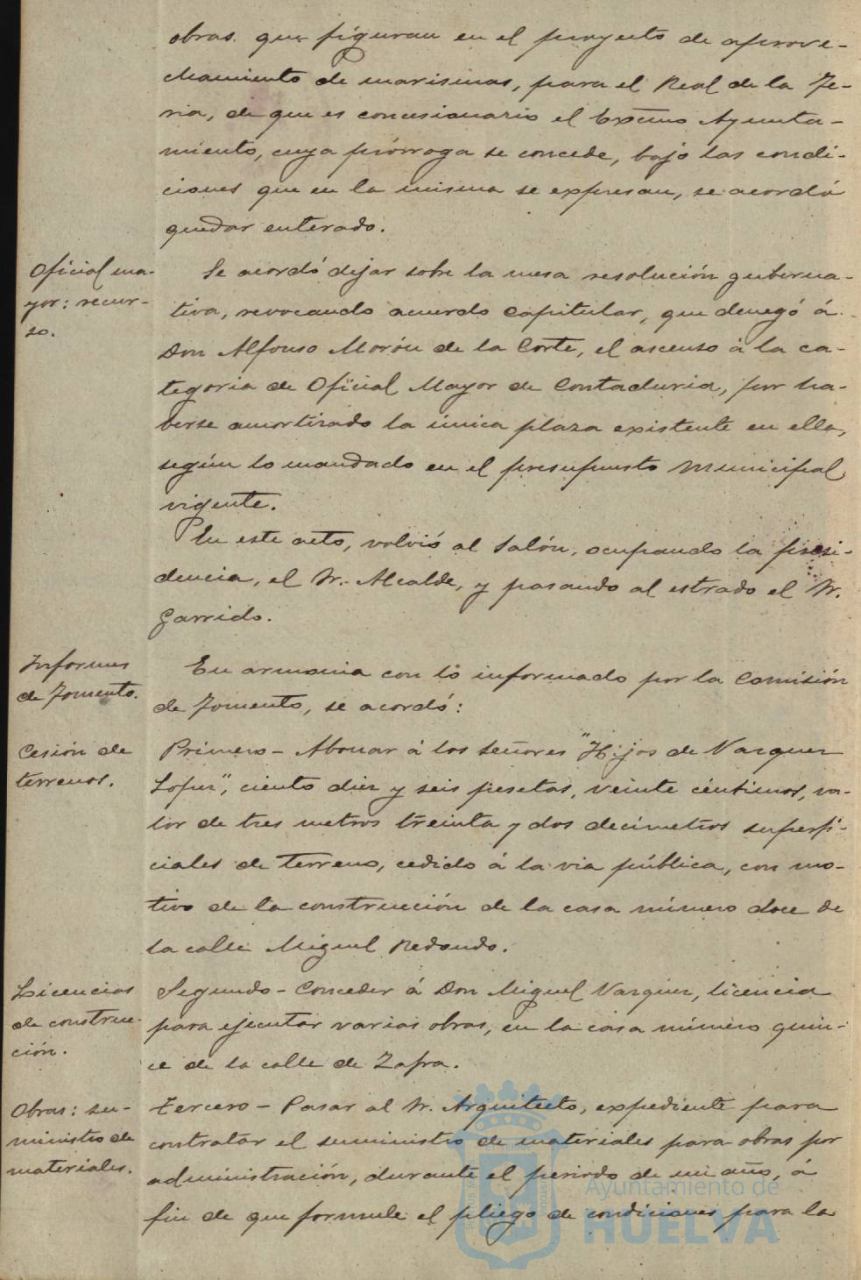 obras que figuran en el proyecto de aprove-
chamiento de marismas, para el Real de la Fe-
ria, de que es concesionario el Excmo Ayunta-
miento, cuya prórroga se concede, bajo las condi-
ciones que en la misma se expresan, se acordó
quedar enterado.
Oficial ma-
yor: recur-
so.
Se acordó dejar sobre la mesa resolución guberna-
tiva, revocando acuerdo capitular, que denegó á
Don Alfonso Morón de la Corte, el ascenso á la ca-
tegoria de Oficial Mayor de Contaduria, por ha-
berse amortizado la única plaza existente en ella,
según lo mandado en el presupuesto Municipal
vigente.
En este acto, volvió al Salón, ocupando la presi-
dencia, el Sr. Alcalde, y pasando al estrado el Sr.
Garrido.
Informes
de Fomento.
En armonia con lo informado por la Comisión
de Fomento, se acordó:
Cesión de
terrenos.
Primero - Abonar á los señores "Hijos de Vazquez
Lopez", ciento diez y seis pesetas, veinte céntimos, va-
lor de tres metros treinta y dos decímetros superfi-
ciales de terreno, cedido á la via pública, con mo-
tivo de la construcción de la casa número doce de
la calle Miguel Redondo.
Licencias
de construc-
ción.
Segundo - Conceder á Don Miguel Vazquez, licencia
para ejecutar varias obras, en la casa número quin-
ce de la calle de Zafra.
Obras: su-
ministro de
materiales.
Tercero - Pasar al Sr. Arquitecto, expediente para
contratar el suministro de materiales para obras por
administración, durante el periodo de un año, á
fin de que formule el pliego de condiciones para la
Ayuntamiento de
HUELVA